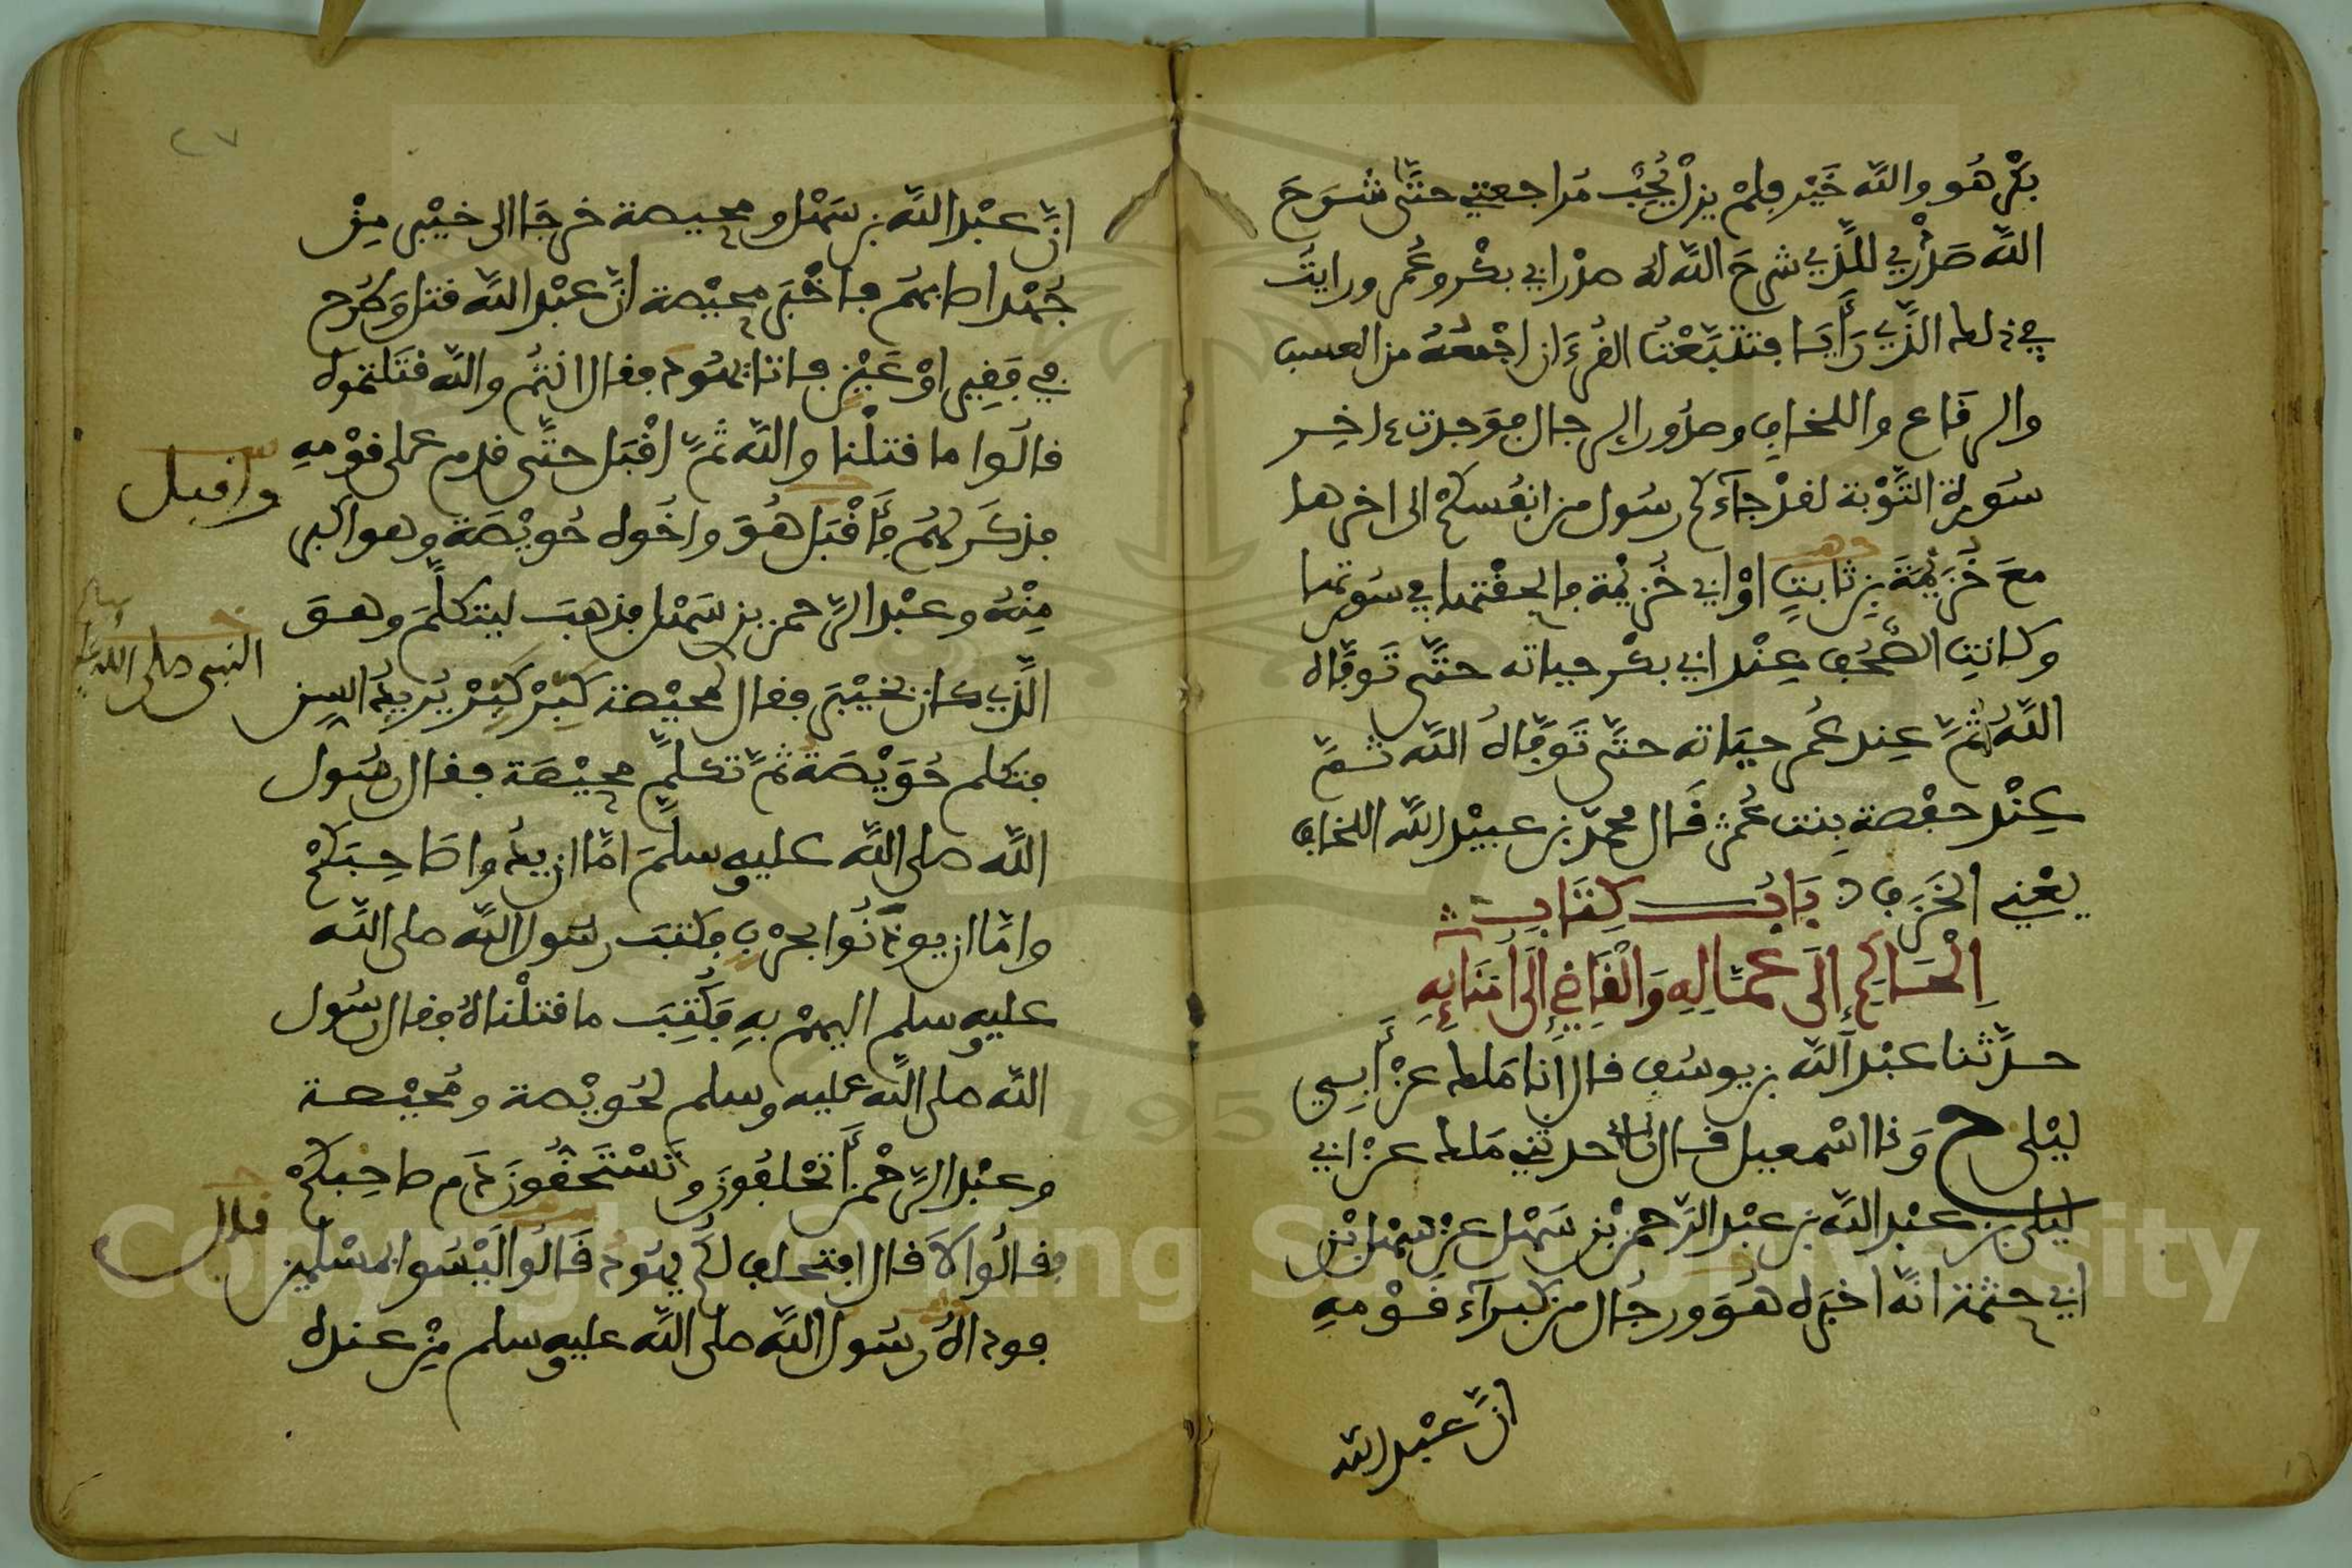 بكر هو والله خير فلم يزل يحب مراجعتي حتى شرح
الله صدري للذي شرح الله له صدر ابي بكر وعمر ورايت
في ذلك الذي رأيا فتتبعت القرءان اجمعه من العسب
والرقاع واللخاف وصدور الرجال فوجدت ءاخر
سورة التوبة لقد جآءكم رسول من انفسكم الى اخرها
مع خزيمة بن ثابت او ابي خزيمة فالحقتها في سورتها
وكانت الصحف عند ابي بكر حياته حتى توفاه
الله ثم عند عمر حياته حتى توفاه الله ثم
عند حفصة بنت عمر قال محمد بن عبيد الله اللخاف
يعني الخزف باب كتاب
الحاكم إلى عماله والقاضي إلى امنايه
حدثنا عبد الله بن يوسف قال انا ملك عن أبي
ليلى ح ونا اسمعيل قال حدثني ملك عن ابي
ليلى بن عبد الله بن عبد الرحمن بن سهل عن سهل بن
ابي حثمة انه اخبره هو ورجال من كبرآء قومه
ان عبد الله
ان عبد الله بن سهل ومحيصة خرجا الى خيبر من
جهد اصابهم فاخبر محيصة ان عبد الله قتل وطرح
في فقير او عين فاتا يهود فقال انتم والله قتلتموه
قالوا ما قتلنا والله ثم اقبل حتى قدم على قومه
فذكر لهم فأقبل هو واخوه حويصة وهو اكبر
واقبل
منه وعبد الرحمن بن سهل فذهب ليتكلم وهو
الذي كان بخيبر فقال لمحيصة كبر كبر يريد السن
النبي صلى الله عليه وسلم
فتكلم حويصة ثم تكلم محيصة فقال رسول
الله صلى الله عليه وسلم اما ان يدوا صاحبكم
واما ان يوذنوا بحرب فكتب رسول الله صلى الله
عليه وسلم اليهم به فكتب ما قتلناه فقال رسول
الله صلى الله عليه وسلم لحويصة ومحيصة
وعبد الرحمن أتحلفون وتستحقون دم صاحبكم
فقالوا لا قال افتحلف لكم يهود قالوا ليسوا بمسلمين
قال
فوداه رسول الله صلى الله عليه وسلم من عنده
٢٧
Copyright © King Saud University
195